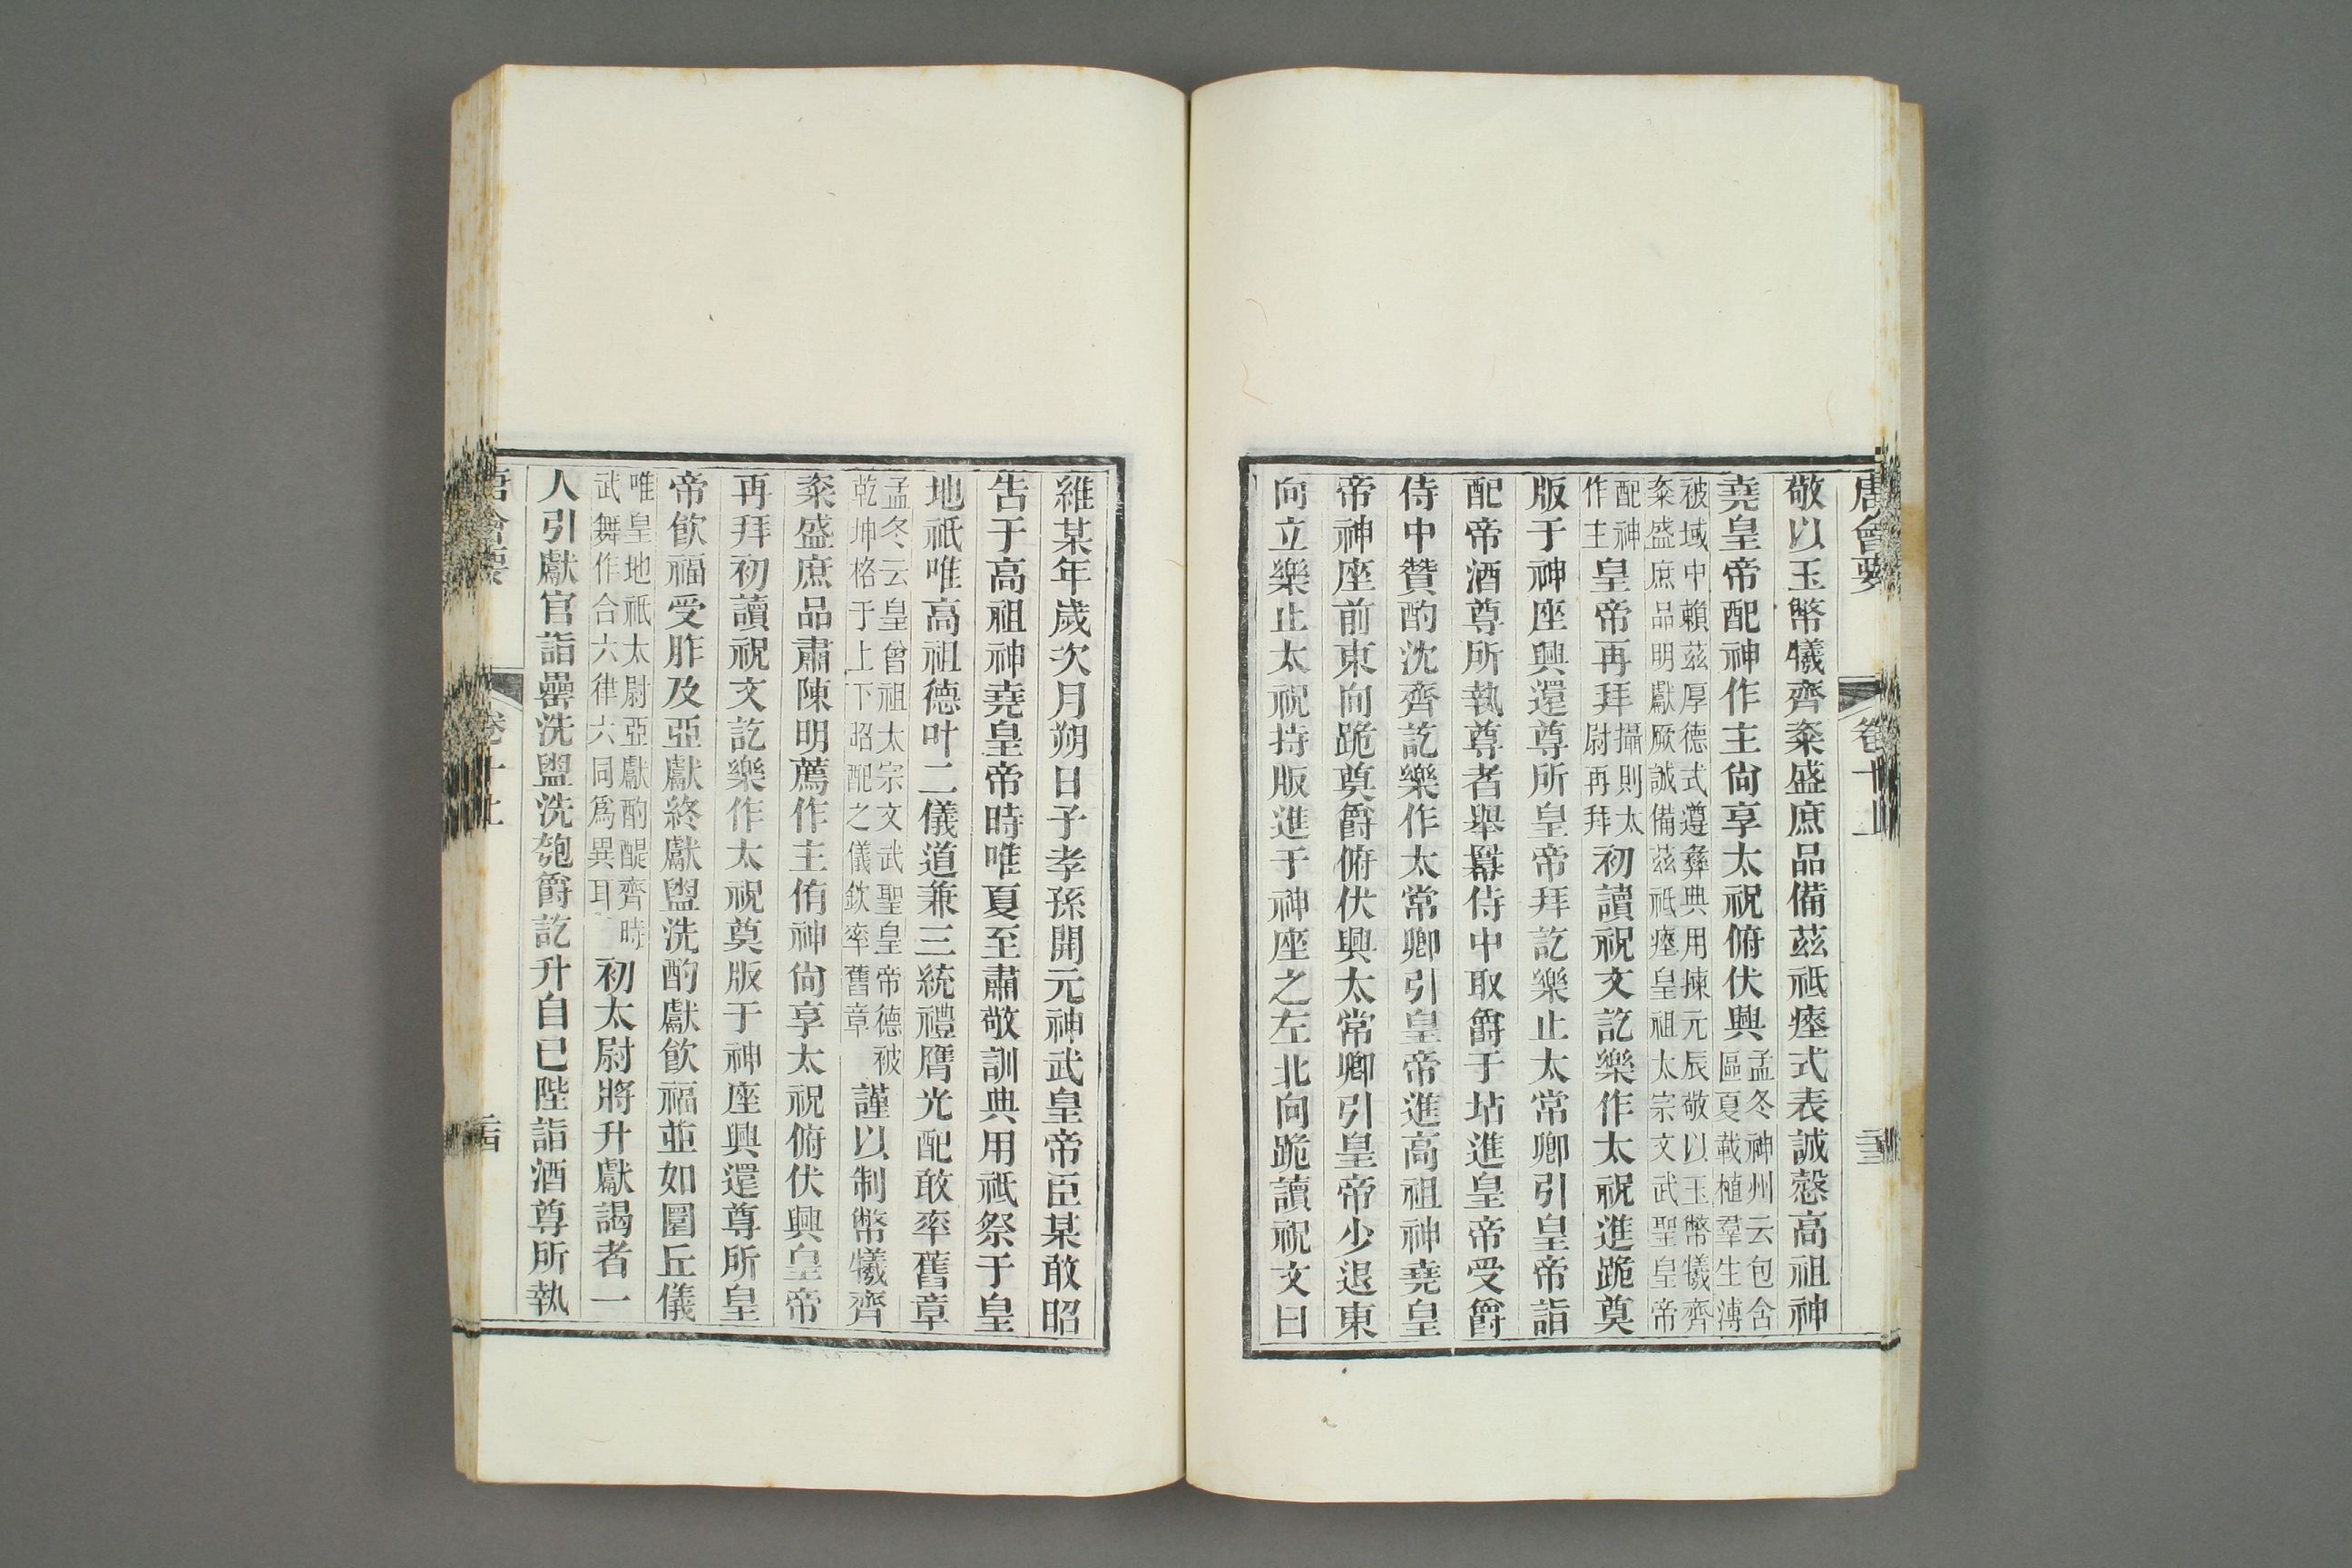 唐會要 卷十上 二十三
敬以玉幣犧齊粢盛庶品備茲祗瘞式表誠慤高祖神
堯皇帝配神作主尙享太祝俯伏興孟冬神州云包含區夏載植羣生溥
被域中賴茲厚德式遵彝典用揀元辰敬以玉幣犧齊粢盛庶品明獻厥誠備茲祗瘞皇祖太宗文武聖皇帝
配神作主皇帝再拜攝則太尉再拜初讀祝文訖樂作太祝進跪奠
版于神座興還尊所皇帝拜訖樂止太常卿引皇帝詣
配帝酒尊所執尊者舉冪侍中取爵于坫進皇帝受爵
侍中贊酌沈齊訖樂作太常卿引皇帝進高祖神堯皇
帝神座前東向跪奠爵俯伏興太常卿引皇帝少退東
向立樂止太祝持版進于神座之左北向跪讀祝文曰
維某年歲次月朔日子孝孫開元神武皇帝臣某敢昭
告于高祖神堯皇帝時唯夏至肅敬訓典用祇祭于皇
地祇唯高祖德叶二儀道兼三統禮膺光配敢率舊章
孟冬云皇曾祖太宗文武聖皇帝德被乾坤格于上下昭配之儀欽率舊章謹以制幣犧齊
粢盛庶品肅陳明薦作主侑神尙享太祝俯伏興皇帝
再拜初讀祝文訖樂作太祝奠版于神座興還尊所皇
帝飮福受胙及亞獻終獻盥洗酌獻飮福並如圜丘儀
唯皇地祇太尉亞獻酌醍齊時武舞作合六律六同爲異耳初太尉將升獻謁者一
人引獻官詣罍洗盥洗匏爵訖升自已陛詣酒尊所執
唐會要 卷十上 二十四